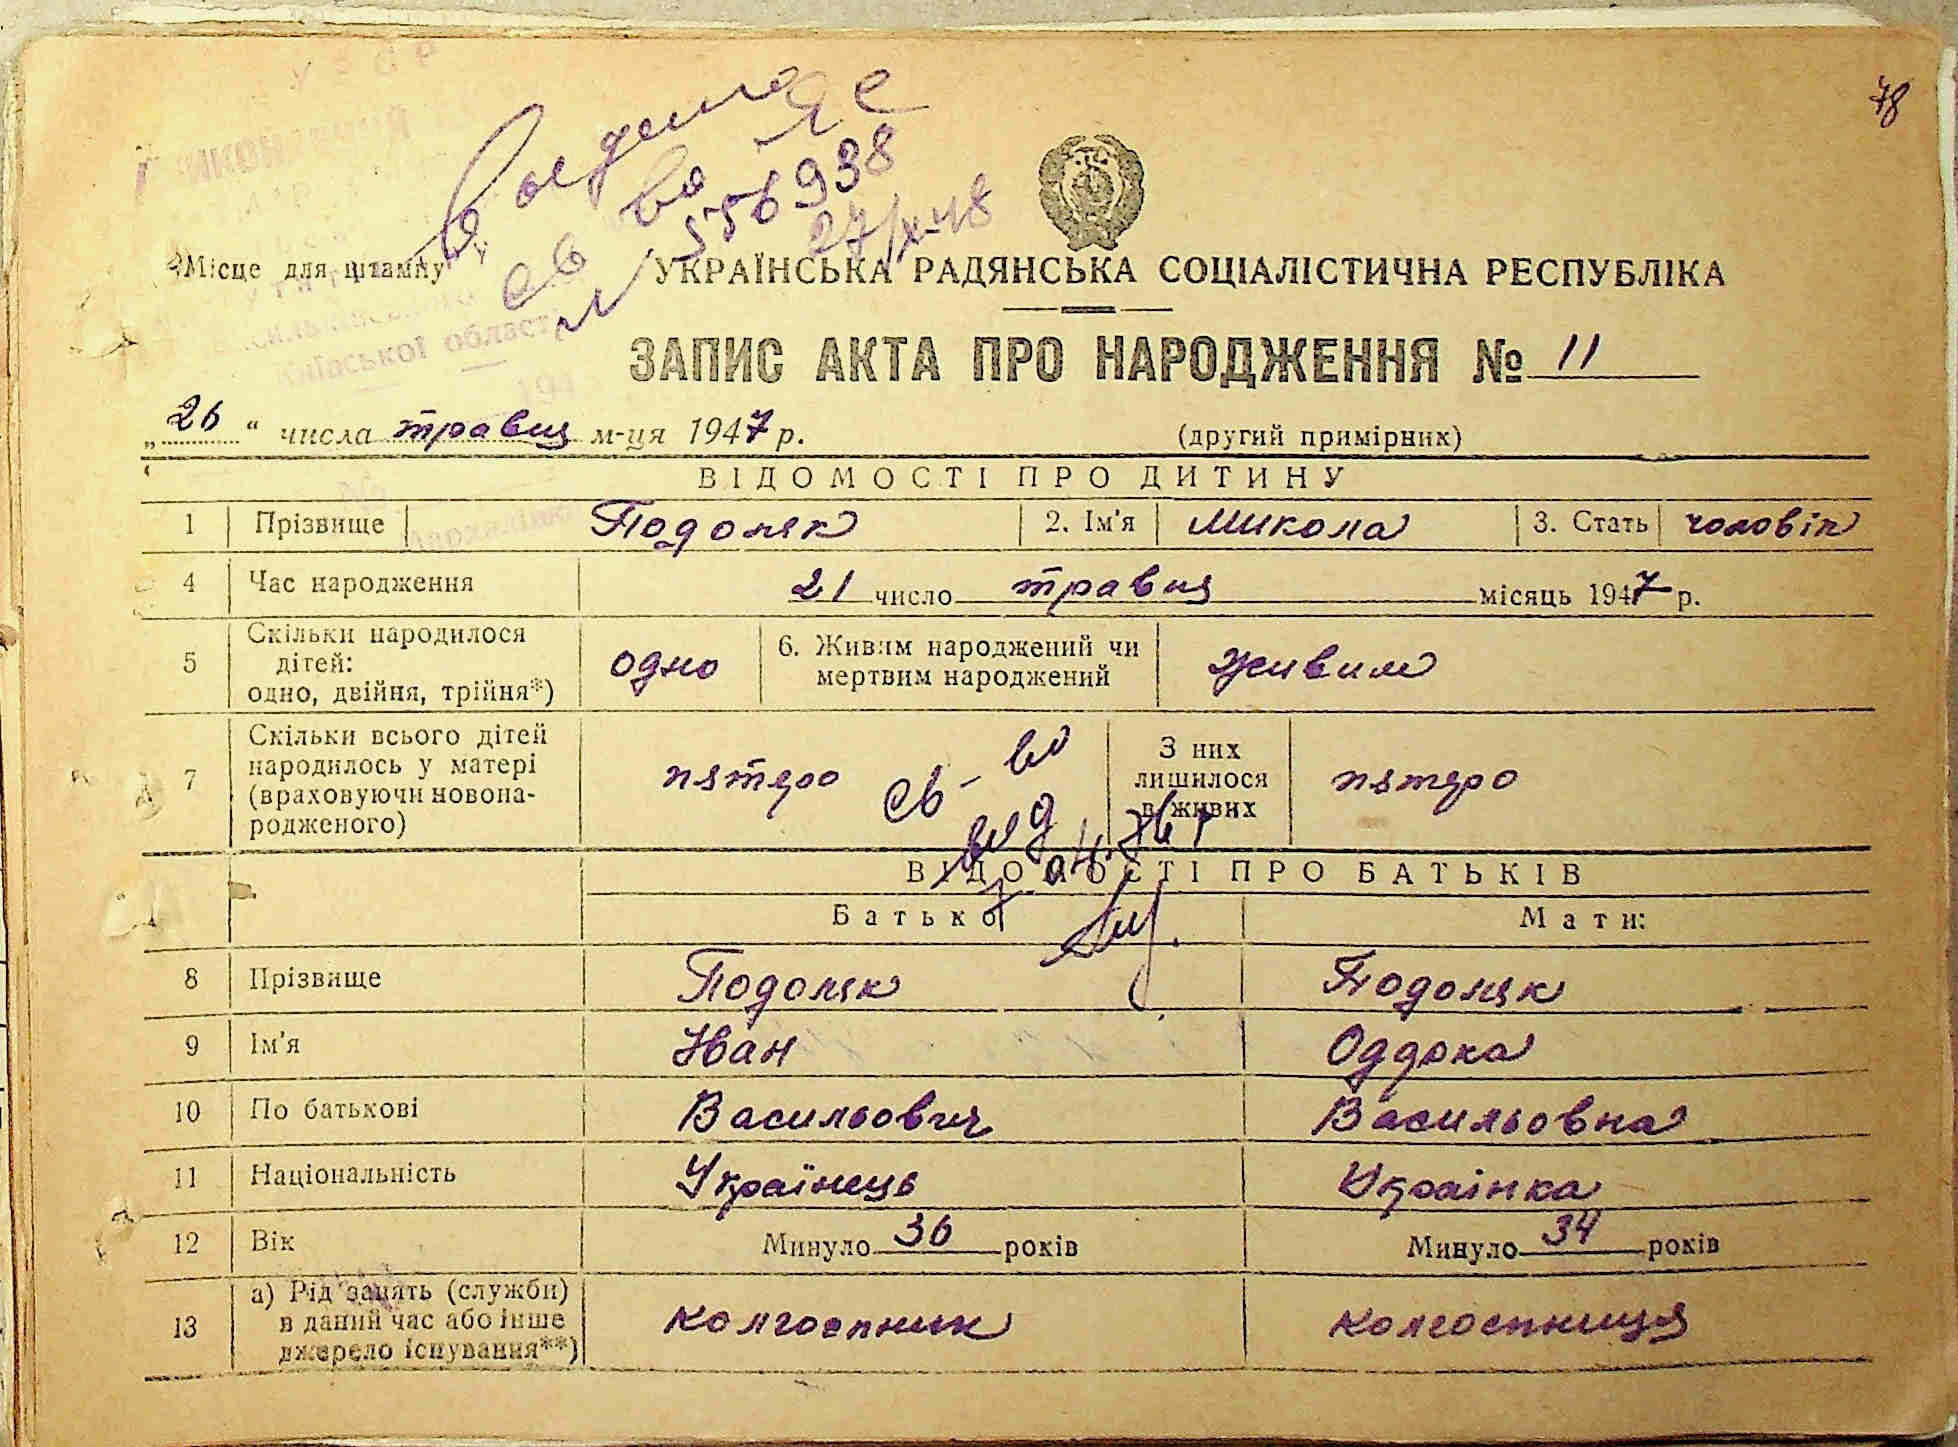 78
св во ЯЕ
№ 556938
27/X-48
Місце для штампу
Київської області
УКРАЇНСЬКА РАДЯНСЬКА СОЦІАЛІСТИЧНА РЕСПУБЛІКА
ЗАПИС АКТА ПРО НАРОДЖЕННЯ № 11
„26“ числа травня м-ця 1947 р.
(другий примірник)
ВІДОМОСТІ ПРО ДИТИНУ
1 Прізвище Подоляк 2. Ім'я Микола 3. Стать чоловіч
4 Час народження 21 число травня місяць 1947 р.
5 Скільки народилося дітей: одно, двійня, трійня*) одно 6. Живим народжений чи мертвим народжений живим
7 Скільки всього дітей народилось у матері (враховуючи новонародженого) пятеро З них лишилося в живих пятеро
св-во
ВІДОМОСТІ ПРО БАТЬКІВ
Батько Мати:
8 Прізвище Подоляк Подоляк
9 Ім'я Іван Оддока
10 По батькові Васильович Васильовна
11 Національність Українець Українка
12 Вік Минуло 36 років Минуло 34 років
13 а) Рід занять (служби) в даний час або інше джерело існування**) колгоспник колгоспниця